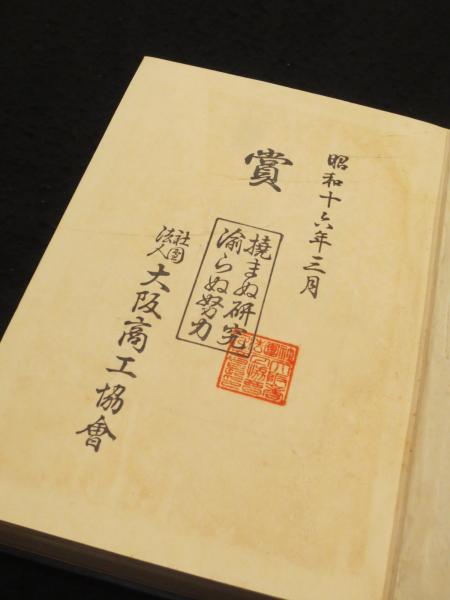 昭和十六年三月
賞
撓まぬ研究
渝らぬ努力
社団法人
大阪商工協會